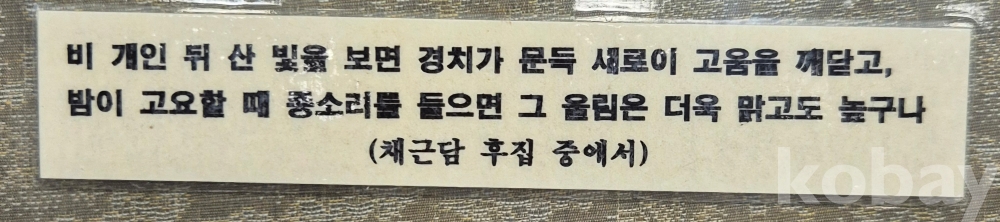 비 개인 뒤 산 빛을 보면 경치가 문득 새로이 고움을 깨닫고,
밤이 고요할 때 종소리를 들으면 그 울림은 더욱 맑고도 높구나
(채근담 후집 중에서)
kobay